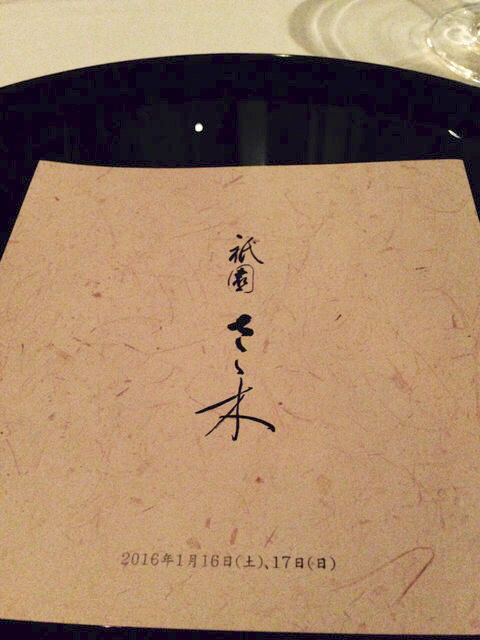 祇園
さゝ木
2016年1月16日(土)、17日(日)